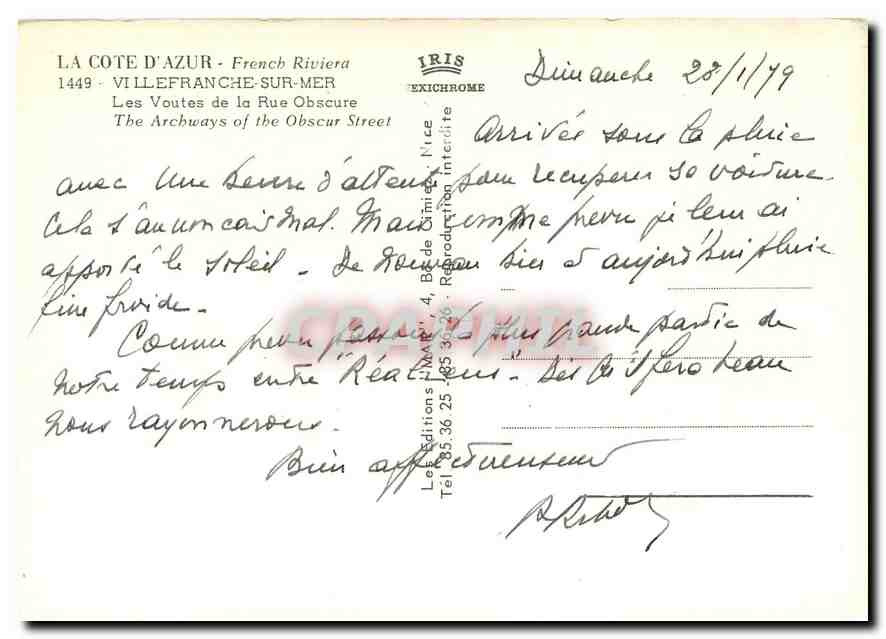 LA COTE D'AZUR - French Riviera
1449 - VILLEFRANCHE-SUR-MER
Les Voutes de la Rue Obscure
The Archways of the Obscur Street
IRIS
MEXICHROME
Les Editions "MAR", 4, Bd de Cimiez, Nice
Tél. 85.36.25 - 85.36.26 - Reproduction interdite
Dimanche 28/1/79
Arrivée sous la pluie
avec une heure d'attente pour recuperer sa voiture.
Cela s'annoncais mal. Mais comme prevu je leur ai
apporté le soleil - De nouveau hier et aujourd'hui pluie
fine froide -
Comme prevu passons la plus grande partie de
notre temps entre "Réaliens" - Dès qu'il fera beau
nous rayonnerons.
Bien affectueusement
CPAPHIL